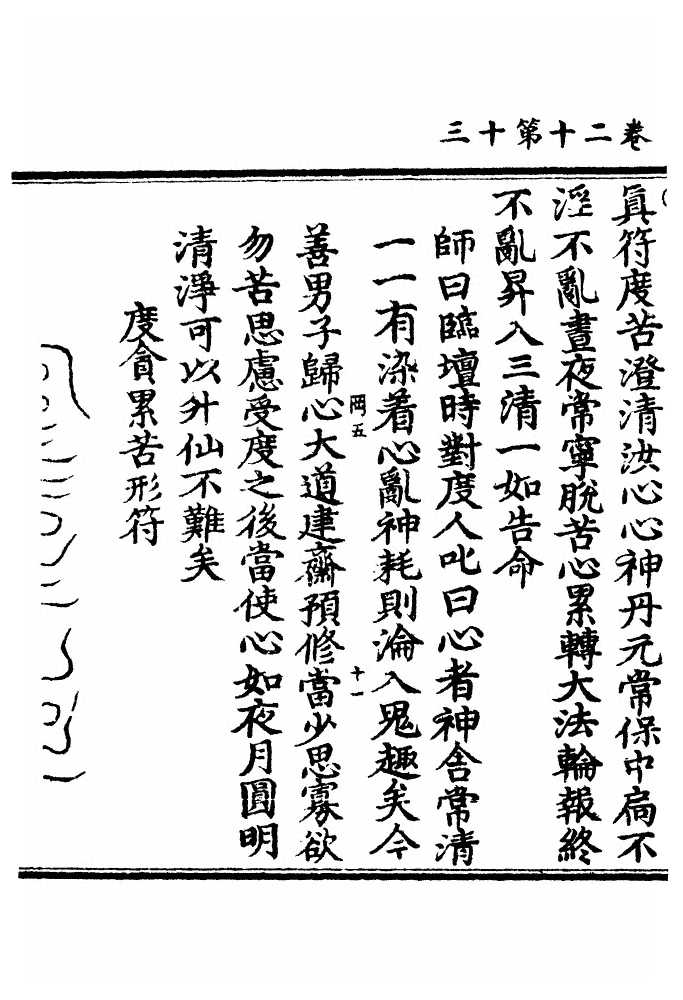 卷二十第十三
真符度苦澄清汝心心神丹元常保中扃不
淫不亂晝夜常寧脫苦心累轉大法輪報終
不亂昇入三清一如告命
師曰臨壇時對度人叱曰心者神舍常清
一一有染着心亂神耗則淪入鬼趣矣今
岡五
十一
善男子歸心大道建齋預修當少思寡欲
勿苦思慮受度之後當使心如夜月圓明
清淨可以升仙不難矣
度貪累苦形符